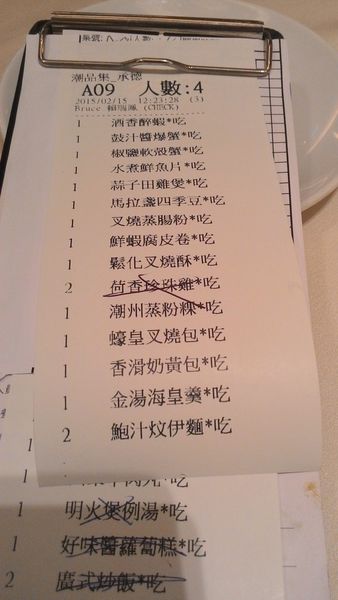 潮品集_承德
A09 人數:4
2015/02/15 12:23:28 (3)
Bruce 賴瑞鳳 (CHECK)
1 酒香醉蝦*吃
1 鼓汁醬爆蟹*吃
1 椒鹽軟殼蟹*吃
1 水煮鮮魚片*吃
1 蒜子田雞煲*吃
1 馬拉盞四季豆*吃
1 叉燒蒸腸粉*吃
1 鮮蝦腐皮卷*吃
1 鬆化叉燒酥*吃
2 荷香珍珠雞*吃
1 潮州蒸粉粿*吃
1 蠔皇叉燒包*吃
1 香滑奶黃包*吃
1 金湯海皇羹*吃
2 鮑汁炆伊麵*吃
1 明火煲例湯*吃
1 好味醬蘿蔔糕*吃
2 廣式炒飯*吃